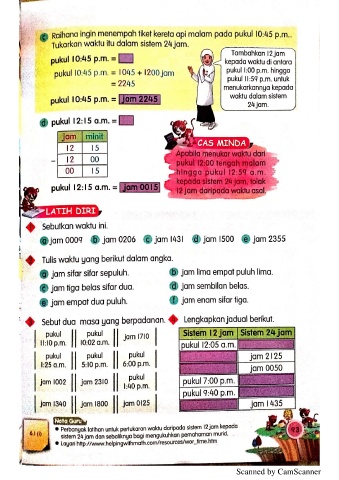 c Raihana ingin menempah tiket kereta api malam pada pukul 10:45 p.m..
Tukarkan waktu itu dalam sistem 24 jam.
pukul 10:45 p.m. =
pukul 10:45 p.m. = 1045 + 1200 jam
= 2245
pukul 10:45 p.m. = jam 2245
Tambahkan 12 jam
kepada waktu di antara
pukul 1:00 p.m. hingga
pukul 11:59 p.m. untuk
menukarkannya kepada
waktu dalam sistem
24 jam.
d pukul 12:15 a.m. =
jam minit
12 15
- 12 00
00 15
pukul 12:15 a.m. = jam 0015
CAS MINDA
Apabila menukar waktu dari
pukul 12:00 tengah malam
hingga pukul 12:59 a.m.
kepada sistem 24 jam, tolak
12 jam daripada waktu asal.
LATIH DIRI
Sebutkan waktu ini.
a jam 0009 b jam 0206 c jam 1431 d jam 1500 e jam 2355
Tulis waktu yang berikut dalam angka.
a jam sifar sifar sepuluh. b jam lima empat puluh lima.
c jam tiga belas sifar dua. d jam sembilan belas.
e jam empat dua puluh. f jam enam sifar tiga.
Sebut dua masa yang berpadanan.
pukul 11:10 p.m. pukul 10:02 a.m. jam 1710
pukul 1:25 a.m. pukul 5:10 p.m. pukul 6:00 p.m.
jam 1002 jam 2310 pukul 1:40 p.m.
jam 1340 jam 1800 jam 0125
Lengkapkan jadual berikut.
Sistem 12 jam Sistem 24 jam
pukul 12:05 a.m.
jam 2125
jam 0050
pukul 7:00 p.m.
pukul 9:40 p.m.
jam 1435
Nota Guru
Perbanyak latihan untuk pertukaran waktu daripada sistem 12 jam kepada
sistem 24 jam dan sebaliknya bagi mengukuhkan pemahaman murid.
Layari http://www.helpingwithmath.com/resources/wor_time.htm
6.1 (i)
93
Scanned by CamScanner